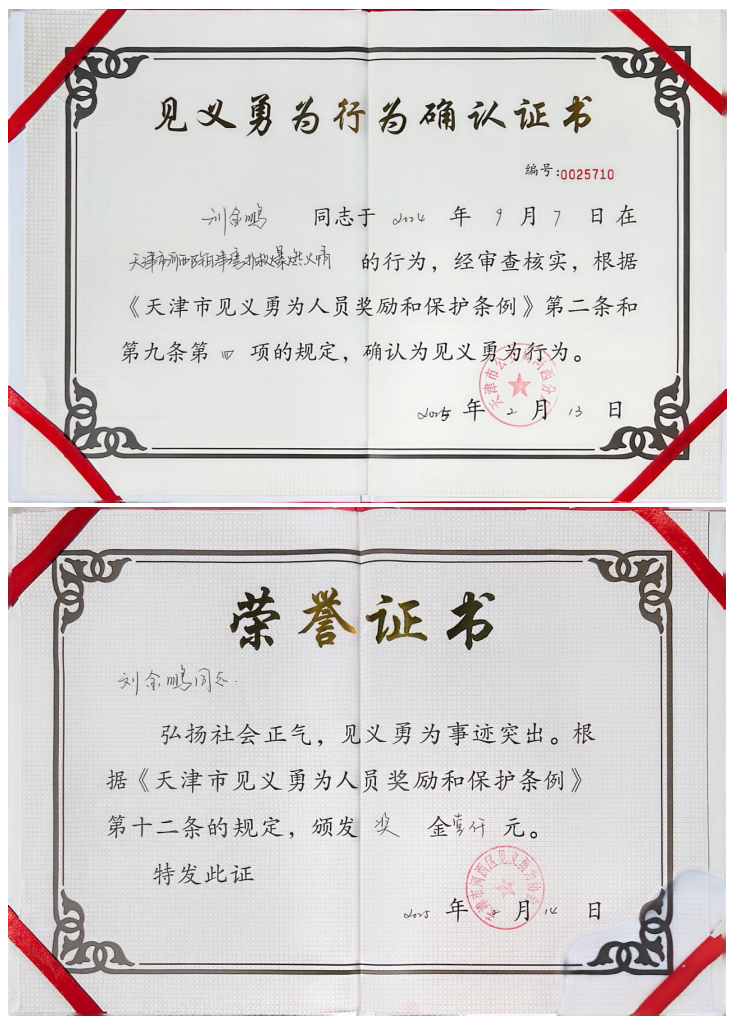 见义勇为行为确认证书
编号:0025710
刘金鹏 同志于 2024 年 9 月 7 日在
天津市河西区 扑救爆燃火情 的行为，经审查核实，根据
《天津市见义勇为人员奖励和保护条例》第二条和
第九条第 四 项的规定，确认为见义勇为行为。
天津市公安局河西分局
2025 年 2 月 13 日
荣誉证书
刘金鹏同志:
弘扬社会正气，见义勇为事迹突出。根
据《天津市见义勇为人员奖励和保护条例》
第十二条的规定，颁发 奖 金壹仟 元。
特发此证
天津市河西区见义勇为协会
2025 年 2 月 14 日